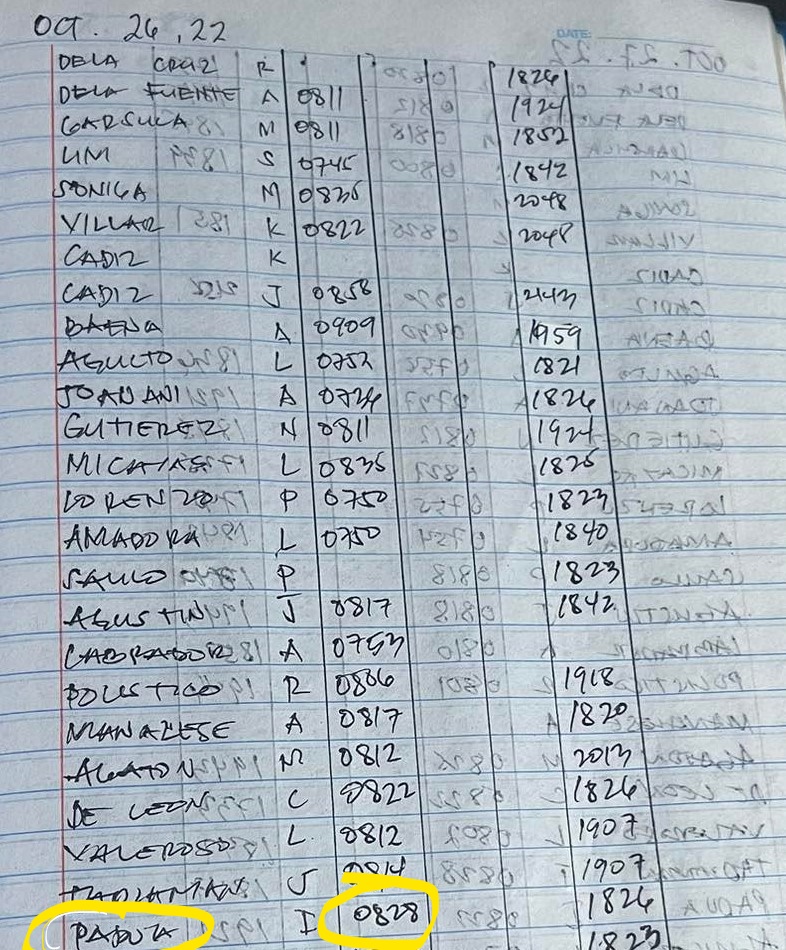 OCT. 26, 22
DATE:
DELA CRUZ R 1826
DELA FUENTE A 0811 1924
GARSULA M 0811 1852
LIM S 0745 1842
SONIGA M 0835 2048
VILLAR K 0822 2048
CADIZ K
CADIZ J 0858 2143
BAENA A 0909 1959
AGULTO L 0752 1821
JOANANI A 0726 1826
GUTIEREZ N 0811 1924
L 0835 1825
LORENZO P 0750 1823
AMADORA L 0750 1840
SAULO P 1823
AGUSTIN J 0817 1842
LABRADOR A 0753
POLISTICO R 0806 1918
MANALESE A 0817 1820
AGATON M 0812 2013
DE LEON C 0822 1826
VALEROSO L 0812 1907
J 0814 1907
PADUA I 0828 1826
1823